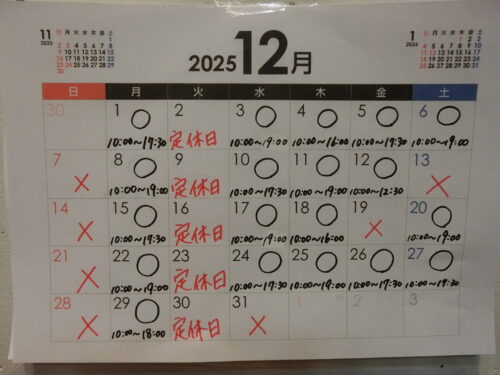 11 2025
日 月 火 水 木 金 土
1
2 3 4 5 6 7 8
9 10 11 12 13 14 15
16 17 18 19 20 21 22
23 24 25 26 27 28 29
30
2025 12月
1 2026
日 月 火 水 木 金 土
1 2 3
4 5 6 7 8 9 10
11 12 13 14 15 16 17
18 19 20 21 22 23 24
25 26 27 28 29 30 31
日 月 火 水 木 金 土
30 1 ○ 2 3 ○ 4 ○ 5 ○ 6 ○
10:00~17:30 定休日 10:00~19:00 10:00~16:00 10:00~17:30 10:00~19:00
7 × 8 ○ 9 10 ○ 11 ○ 12 ○ 13 ×
10:00~19:00 定休日 10:00~17:30 10:00~19:00 10:00~12:30
14 × 15 ○ 16 17 ○ 18 ○ 19 × 20 ○
10:00~17:30 定休日 10:00~19:00 10:00~16:00 10:00~19:00
21 × 22 ○ 23 24 ○ 25 ○ 26 ○ 27 ○
10:00~19:00 定休日 10:00~17:30 10:00~19:00 10:00~17:30 10:00~17:30
28 × 29 ○ 30 31 × 1 2 3
10:00~18:00 定休日